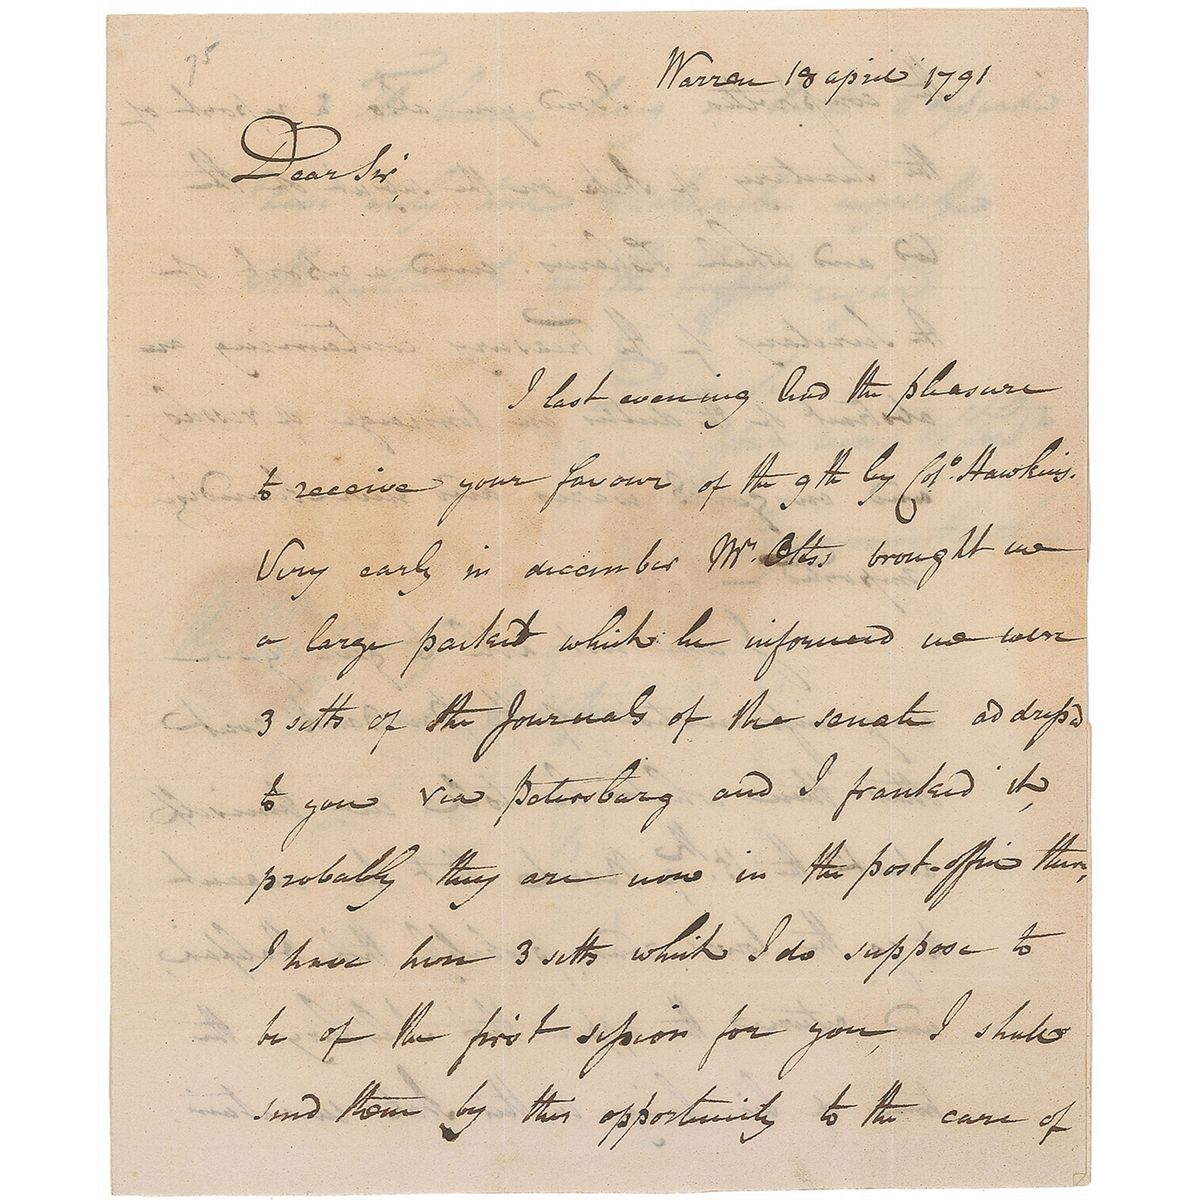 75
Warren 18 april 1791
Dear Sir,
I last evening had the pleasure
to receive your favour of the 9th by Colo. Hawkins.
Very early in december Mr. Otis brought me
a large packed which he informed me were
3 setts of the Journals of the senate addressd
to you via petersburg and I franked it,
probably they are now in the post-office there,
I have here 3 setts which I do suppose to
be of the first session for you, I shall
send them by this opportunity to the care of